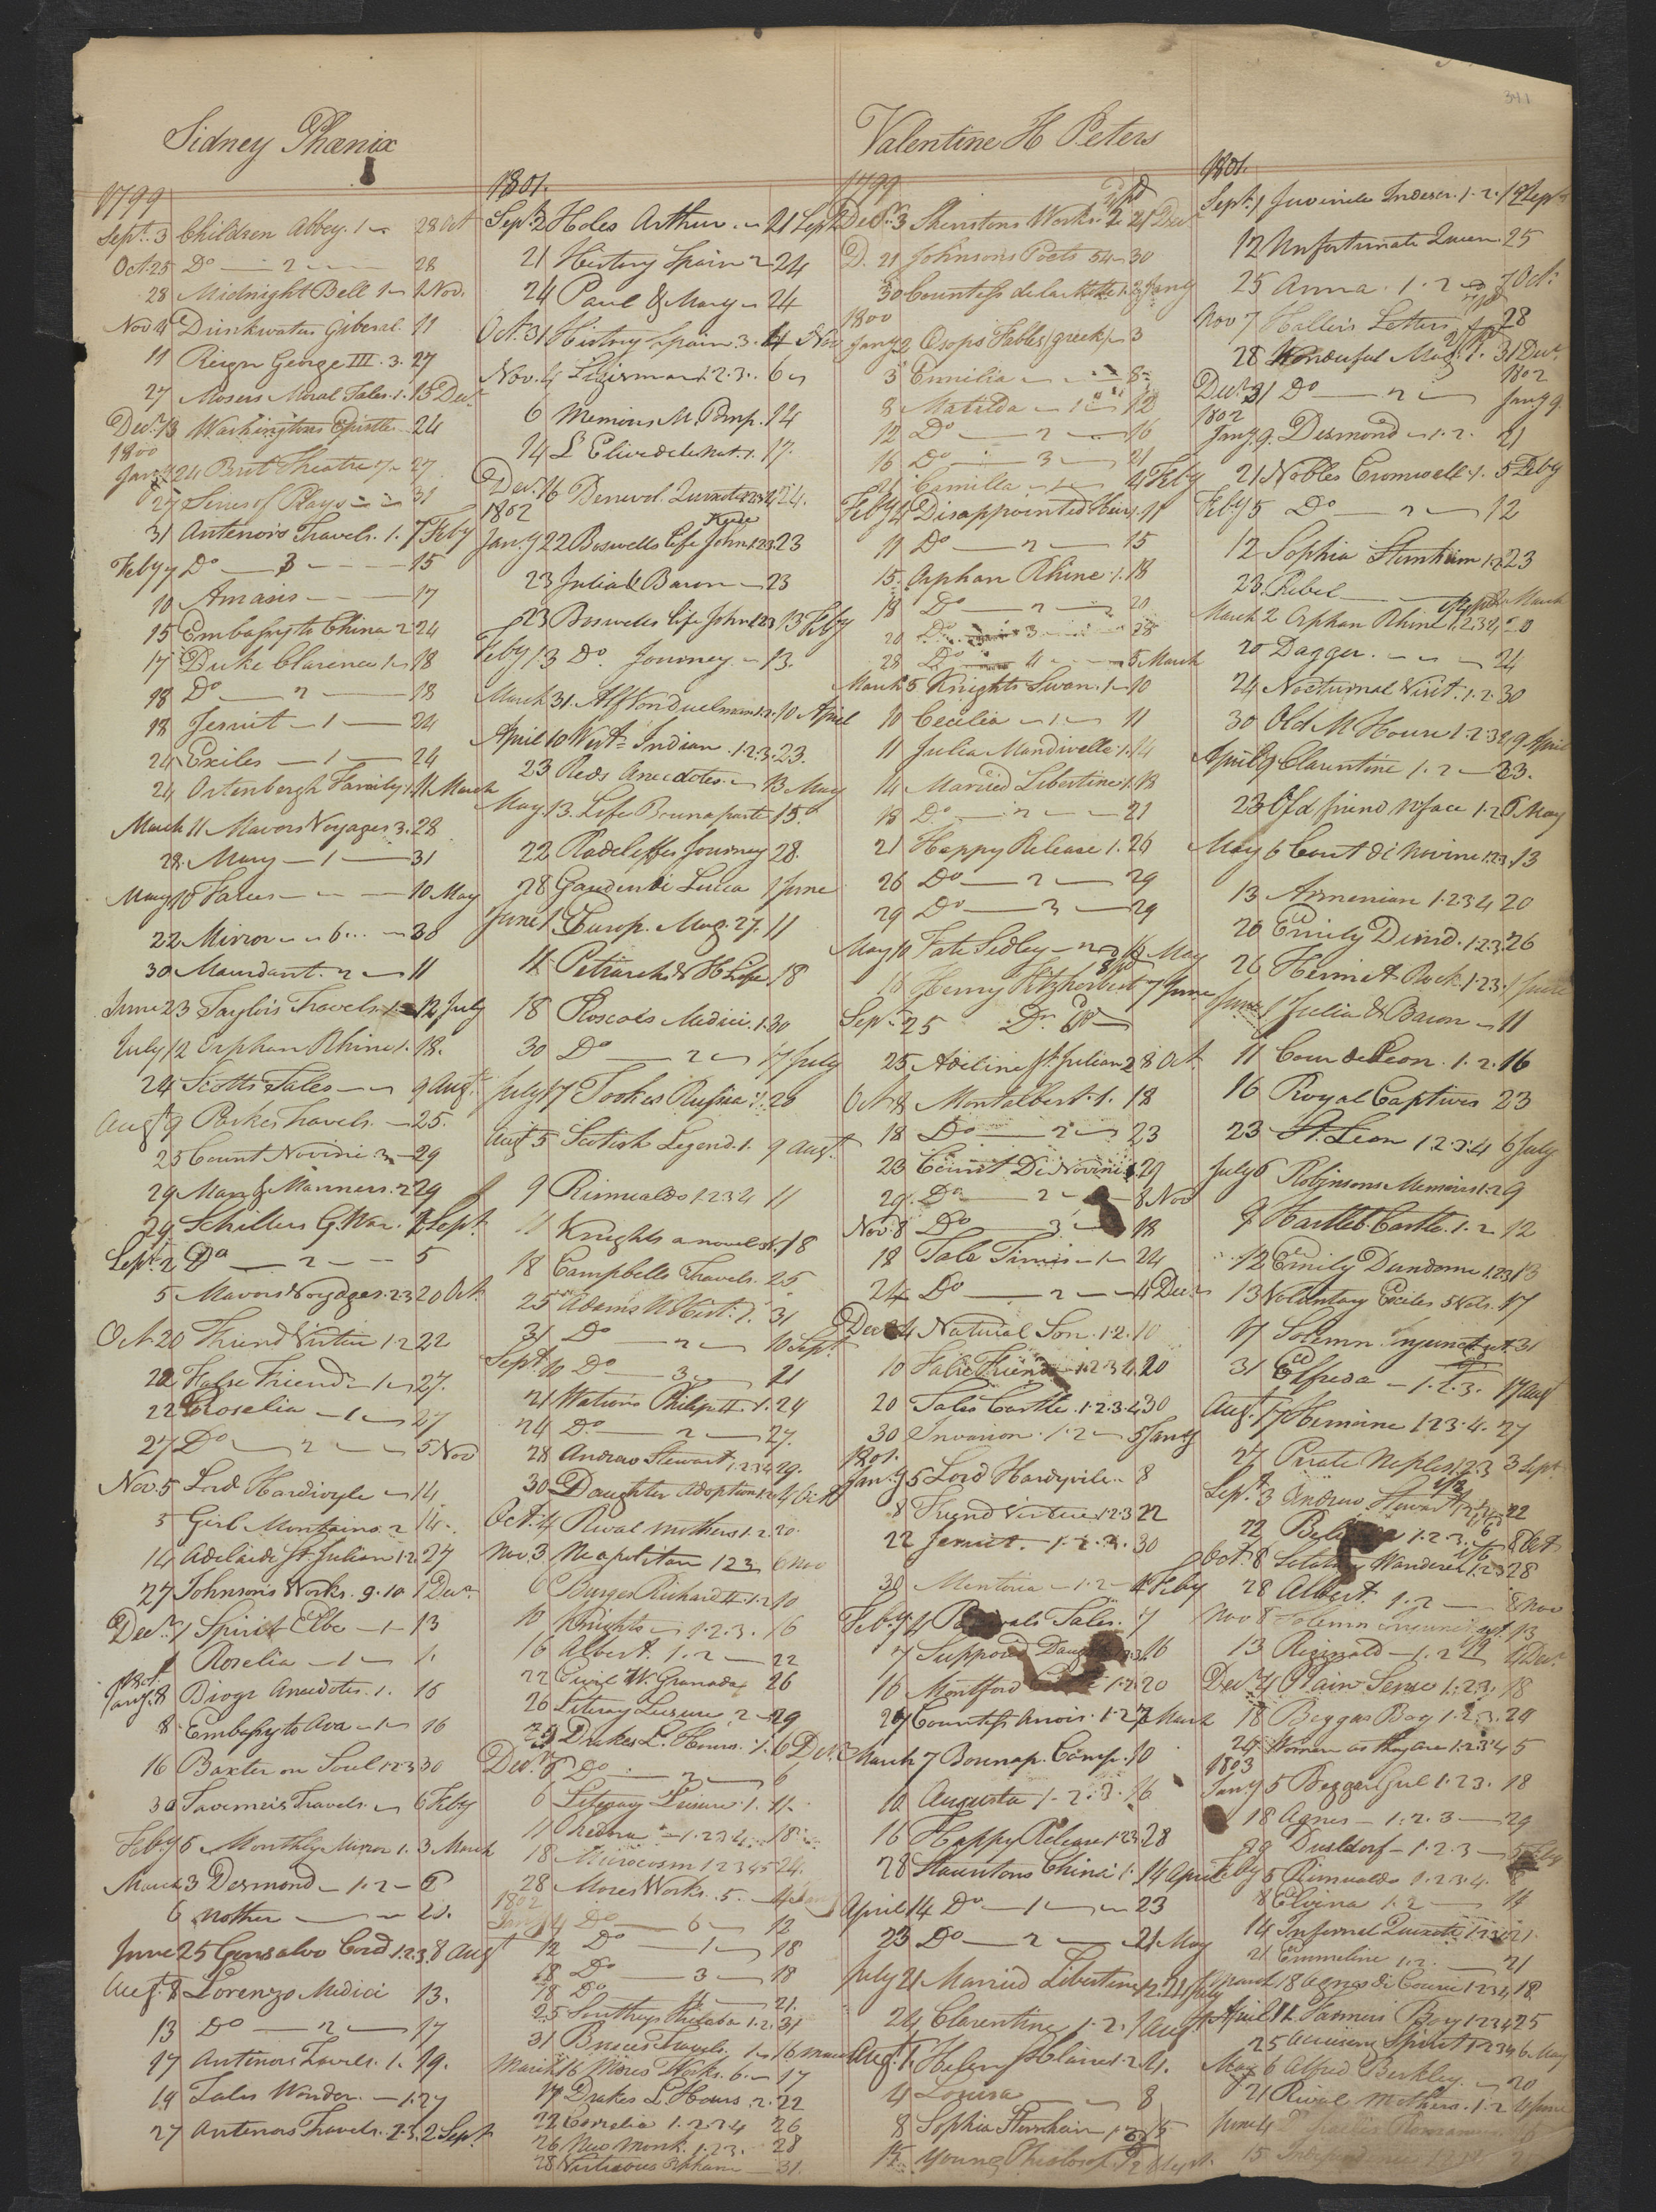 341
Sidney Phœnix
1799
Sept. 3 Children Abbey. 1 28 Oct
Oct. 25 Do 2 28
28 Midnight Bell 1 1 Nov.
Nov 4 Drinkwaters Giberal. 11
11 Reign George III. 3. 27
27 Mosers Moral Tales. 1. 13 Decr
Decr 13 Washingtons Epistles 24
1800
Jany 24 Brit Theatre 27
27 Series of Plays 31
31 Antenors Travels. 1. 7 Feby
Feby 7 Do 3 15
10 Amasis 17
15 Embassy to China 2 24
17 Duke Clarence 1 18
18 Do 2 18
18 Jesuit 1 24
24 Exiles 1 24
24 Ortenbergh Family 1 11 March
March 11 Mavors Voyages 3. 28
28. Mary 1 31
May 10 Tales 10 May
22 Mirror 6 30
30 Mourdant. 2 11
June 23 Taylors Travels. 1. 12 July
July 12 Orphan Rhine 1. 18.
24 Scotts Tales 9 Augt.
Augt 9 Parkes Travels. 25.
25 Count Novini 3 29
29 Man & Manners. 2 29
29 Schillers G. War. 2 Sept.
Sept. 2 Do 2 5
5 Mavors Voyages. 2.3 20 Oct.
Oct. 20 Friend Virtue 1.2 22
22 False Friend 1 27.
22 Roselia 1 27
27 Do 2 5 Nov
Nov. 5 Lord Hardivyle 14
5 Girl Mountains 2 14.
14 Adelaide St. Julian 1.2 27
27 Johnsons Works. 9.10 1 Decr
Decr 1 Spirit Elbe 1 13
1 Roselia 1 1.
1801
Jany. 8 Biogr Anecdotes. 1. 16
8 Embassy to Ava 1 16
16 Baxter on Soul 1.2.3 30
30 Taverneirs Travels. 6 Feby
Feby 6 Monthly Mirror 1. 3 March
March 3 Desmond 1.2 6
6 Mother 20.
June 25 Gonsalvo Cord 1.2.3. 8 Augt
Augt. 8 Lorenzo Medici 13.
13 Do 2 17
17 Antenors Travels. 1. 19.
19 Tales Wonder. 1. 27
27 Antenors Travels. 2.3. 2 Sept.
1801.
Sept. 2 Holes Arthur 21 Sept
21 History Spain 2 24
24 Paul & Mary 24
Oct. 31 History Spain 3. 4 Nov
Nov. 4 Ligirman 1.2.3. 6
6 Memoirs M. Pomp. 14
14 L'Elive de la Nat. 1. 17.
Decr. 16 Benevol. Quixote 1.2.3.4 24.
1802
Jany 22 Boswells Life John 1.2.3 23
23 Julia & Baron 23
23 Boswells Life John 1.2.3 13 Feby
Feby 13 Do. Journey 13.
March 31. Alf Von Duelman 1.2. 10 April
April 10 West Indian. 1.2.3. 23.
23 Reds Anecdotes 13 May
May. 13. Life Buonaparte 15.
22 Radcliffes Journey 28.
28 Gaudentio Lucca 1 June
June 1 Europ. Mag. 27. 11
11 Petrarch & H Life. 18
18 Roscoes Medici. 1. 30
30 Do 2 17 July
July 17 Tookes Russia 1. 26
Augt 5 Scotish Legend. 1. 9 Augt.
9 Rimualdo 1.2.3.4 11
11 Knights a novel 18
18 Campbells Travels. 25
25 Adams N Hist. 1. 31
31 Do 2 10 Sept.
Sept. 10 Do 3 21
21 Watsons Philip II. 1. 24
24 Do. 2 27.
28 Andrew Stewart 1.2.3.4 29.
30 Daughter Adoption 1.2 4 Oct
Oct. 4 Rival Mothers 1.2. 20.
Nov. 3. Neapolitan 1.2.3. 6 Nov
6 Burges Richard II. 1.2 10
10 Knights 1.2.3. 16
16 Albert. 1.2 22
22 Civil W. Granada 26
26 Literary Leisure. 2 29
29 Drakes L. Hours. 1. 6 Decr.
Decr. 6 Do 2 6
6 Literary Leisure. 1. 11.
11 1.2.3.4 18
18 Microcosm 1.2.3.4.5 24.
28 Mores Works. 5. 4 Jany
1802
Jany 4 Do 6 12.
12 Do 1 18
18 Do 3 18
18 Do 4 21.
25 Southeys Thalaba 1.2. 31
31 Bruces Travels. 1 16 March
March 16 Mores Works. 6. 17
17 Drakes L. Hours. 2. 22
22 Cornelia 1.2.3.4 26
26 New Monk. 1.2.3. 28
28 Virtuous Orphans 31.
Valentine H Peters
1799
Decr. 3 Shenstons Works. 2 21 Decr
D. 21 Johnsons Poets 54 30
30 Countess de la Motte 1. 2 Jany
1800
Jany 2 Esops Fables (greek) 3
3 Emilia 8
8 Matilda 1 12
12 Do 2 16
16 Do 3 21
21 Camilla 1 4 Feby
Feby 4 Disappointed Heir 1. 11
11 Do 2 15
15. Orphan Rhine. 1. 18
18 Do 2 20
20 Do 3 28
28 Do 4 5 March
March 5 Knights Swan. 1 10
10 Cecelia 1 11
11 Julia Mandivelle. 1. 14
14 Married Libertine. 1. 18
18 Do 2 21
21 Happy Release 1. 26
26 Do 2 29
29 Do 3 29
May 10 Fate Sedley 2 16 May
16 Henry Fitzherbert 7 June
Sept. 25 Do.
25 Adeline St. Julian 2 8 Oct.
Oct. 8 Montalbert. 1. 18
18 Do 2 23
23 Count Di Novini 1 29
29. Do 2 8 Nov
Nov. 8 Do 3 18
18 Tale Times 1 24
24 Do 2 4 Decr
Decr 4 Natural Son. 1.2. 10
10 False Friend 1.2.3.4. 20
20 Tales Castle. 1.2.3.4 30
30 Invasion. 1.2 5 Jany
1801.
Jany 5 Lord Hardyvile 8
8 Friend Virtue 1.2.3 22
22 Jesuit. 1.2.3. 30
30 Mentoria 1.2 4 Feby
Feby. 4 Tales. 7
7 Supposd Daughter 16
16 Montford Castle 1.2. 20
20 Countess Anois. 1.2 7 March
March 7 Bounap. Camp. 10
10 Augusta 1.2.3. 16
16 Happy Release 1.2.3 28
28 Stauntons China 1. 14 April
April 14 Do 1 23
23 Do 2 21 May
July 21 Married Libertine 1.2. 24 July
24 Clarentine 1.2. 1 Augt
Augt. 1 Helen Glaines 1.2 4.
4 Louisa 8
8 Sophia Sternheim 1.2 15
15 Young Philosof. 2 Sept.
1801.
Sept. 1 Juvenile Indescr. 1.2. 12 Sept
12 Unfortunate Queen 25
25 Anna. 1.2 7 Oct.
Nov 7 Hallers Letters 28
28 Wonderful Mag. 1. 31 Decr.
1802
Decr. 31 Do 2 Jany 9
1802
Jany 9. Desmond 1.2. 21
21 Nobles Cromwell 1. 5 Feby
Feby 5 Do 2 12
12 Sophia Sternheim 1.2 23
23. Rebel 2 March
March 2 Orphan Rhine 1.2.3.4 20
20 Dagger. 24
24 Nocturnal Visit. 1.2. 30
30 Old M. House 1.2.3.4 9 April
April 9 Clarentine 1.2 23.
23 Old friend N face 1.2 6 May
May 6 Count di Novine 1.2.3. 13
13 Armenian 1.2.3.4 20
20 Emily Dumd. 1.2.3. 26
26 Hermit Rock. 1.2.3. 1 June
June 1 Julia & Baron 11
11 Cour de Leon. 1.2. 16
16 Royal Captives 23
23 St. Leon 1.2.3.4 6 July
July 6 Robinsons Memoirs 1.2 9
9 Hartleb. Castle. 1.2 12
12 Emily Dundorne 1.2.3 13
13 Voluntary Exiles 5 Vols. 17
17 Solemn Injunct 31
31 Elfreda 1.2.3. 17 Augt
Augt. 17 Hermione 1.2.3.4. 27
27 Pirate Neples 1.2.3 3 Sept.
Sept. 3 Andrew Stewart 22
22 1.2.3. 8 Oct
Oct. 8 Solitary Wanderer 1.2.3 28
28 Albert. 1.2 8 Nov
Nov 8 Solemn Injunct 13
13 Reginald 1.2 4 Decr.
Decr 4 Plain Sense 1.2.3. 18
18 Beggar Boy 1.2.3. 24
24 Women as they are 1.2.3.4 5
1803
Jany 5 Beggar Girl 1.2.3. 18
18 Agnes 1.2.3 29
29 Dusldorf 1.2.3 5 Feby
Feby 5 Rimualdo 1.2.3.4. 8
8 Elvina 1.2 14
14 Infernal Quixote 21.
21 Emmeline 1.2. 21
March 18 Agnes di Courci 1.2.3.4 18
April 11. Farmers Boy 1.2.3.4 25
25 Accusing Spirit 1.2.3.4 6 May
May 6 Alfred Berkley. 20
21 Rival Mothers. 1.2 4 June
June 4 15
15